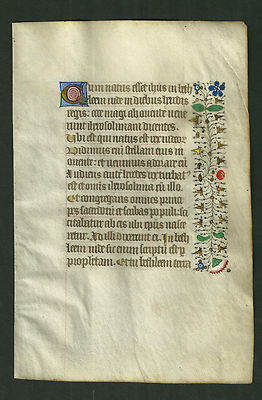 Cum natus esset ihus in beth
leem iude in diebus herodis
regis: ecce magi ab oriente vene
runt iherosolimam dicentes.
Ubi est qui natus est rex iudeor
Vidimus enī stellam eius in
oriente: et venimus adorare eū
Audiens autē herodes rex turbat
est et omīs iherosolima cū illo.
Et congregans omnes princi
pes sacerdotū et scribas populi: sci
citabatur ab eis ubi xps̄ nasce
retur. At illi dixerunt ei. In beth
leem iude sic enim scriptū est p
prophetam. Et tu bethleem terra